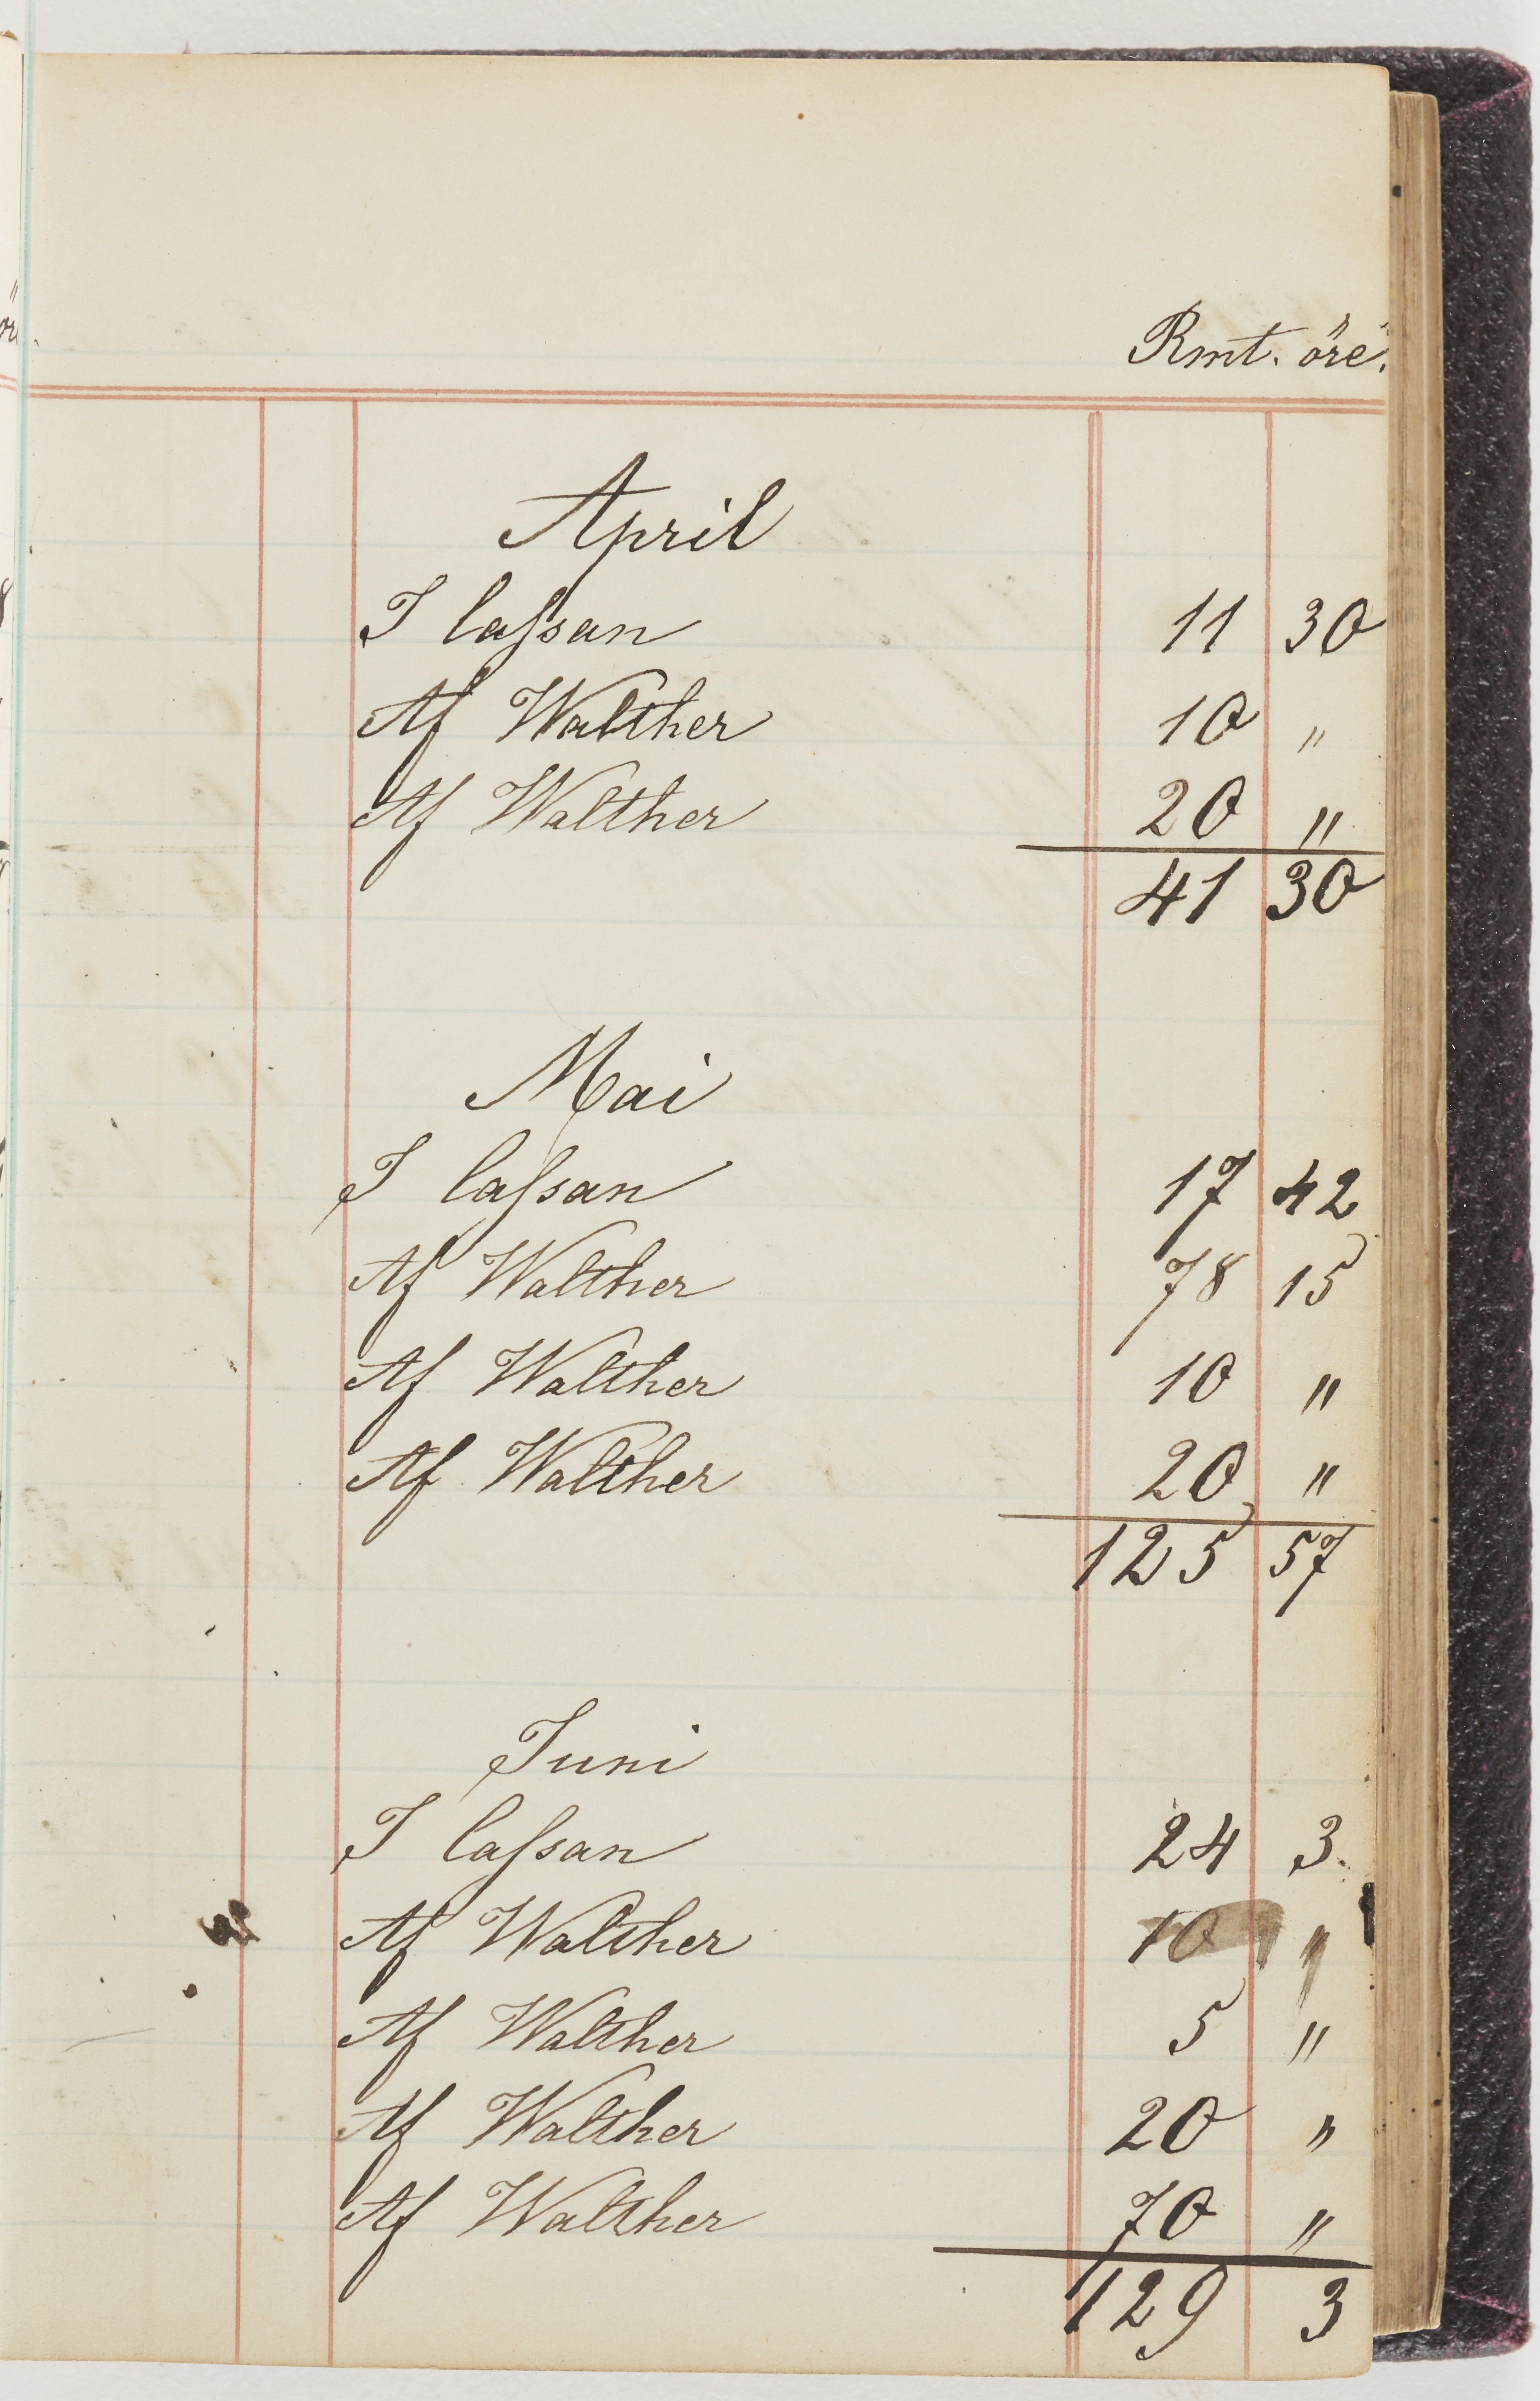 Rmt. öre.
April
I Cassan 11 30
Af Walther 10 "
Af Walther 20 "
41 30
Mai
I Cassan 17 42
Af Walther 78 15
Af Walther 10 "
Af Walther 20 "
125 57
Juni
I Cassan 24 3.
Af Walther 10 "
Af Walther 5 "
Af Walther 20 "
Af Walther 70 "
129 3